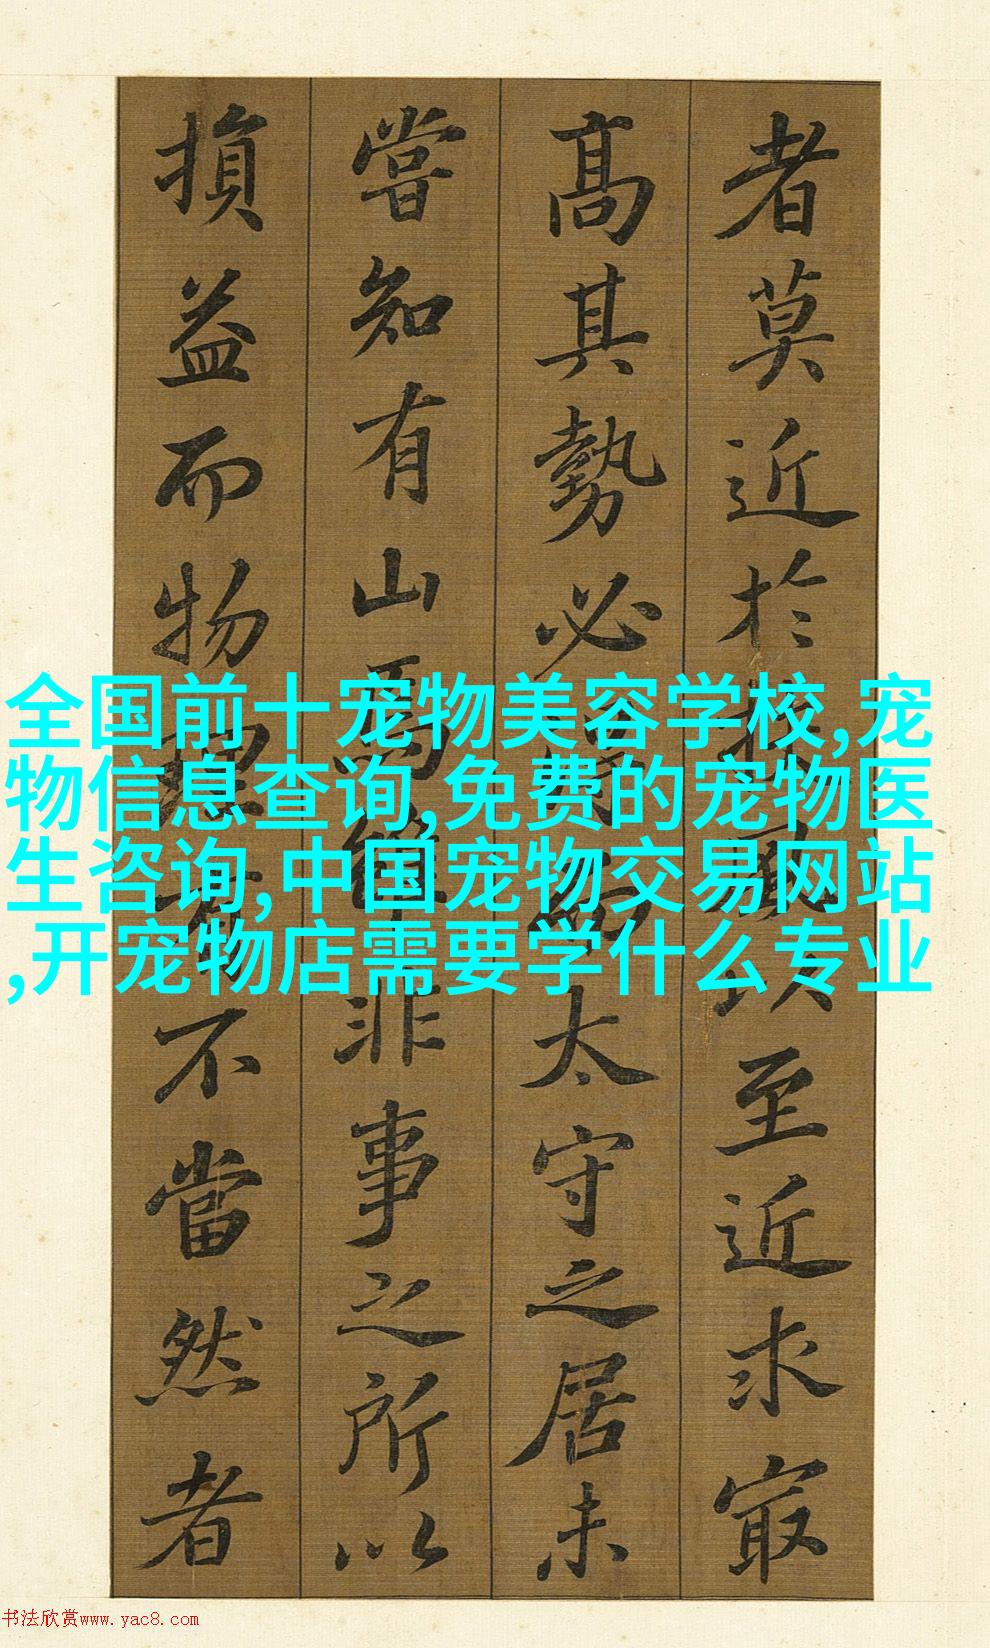 者莫近於扶風以至近求㝡
高其勢必得而太守之居未
嘗知有山焉雖非事之所以
損益而物理有不當然者
全国前十宠物美容学校,宠
物信息查询,免费的宠物医
生咨询,中国宠物交易网站
,开宠物店需要学什么专业
书法欣赏www.yac8.com